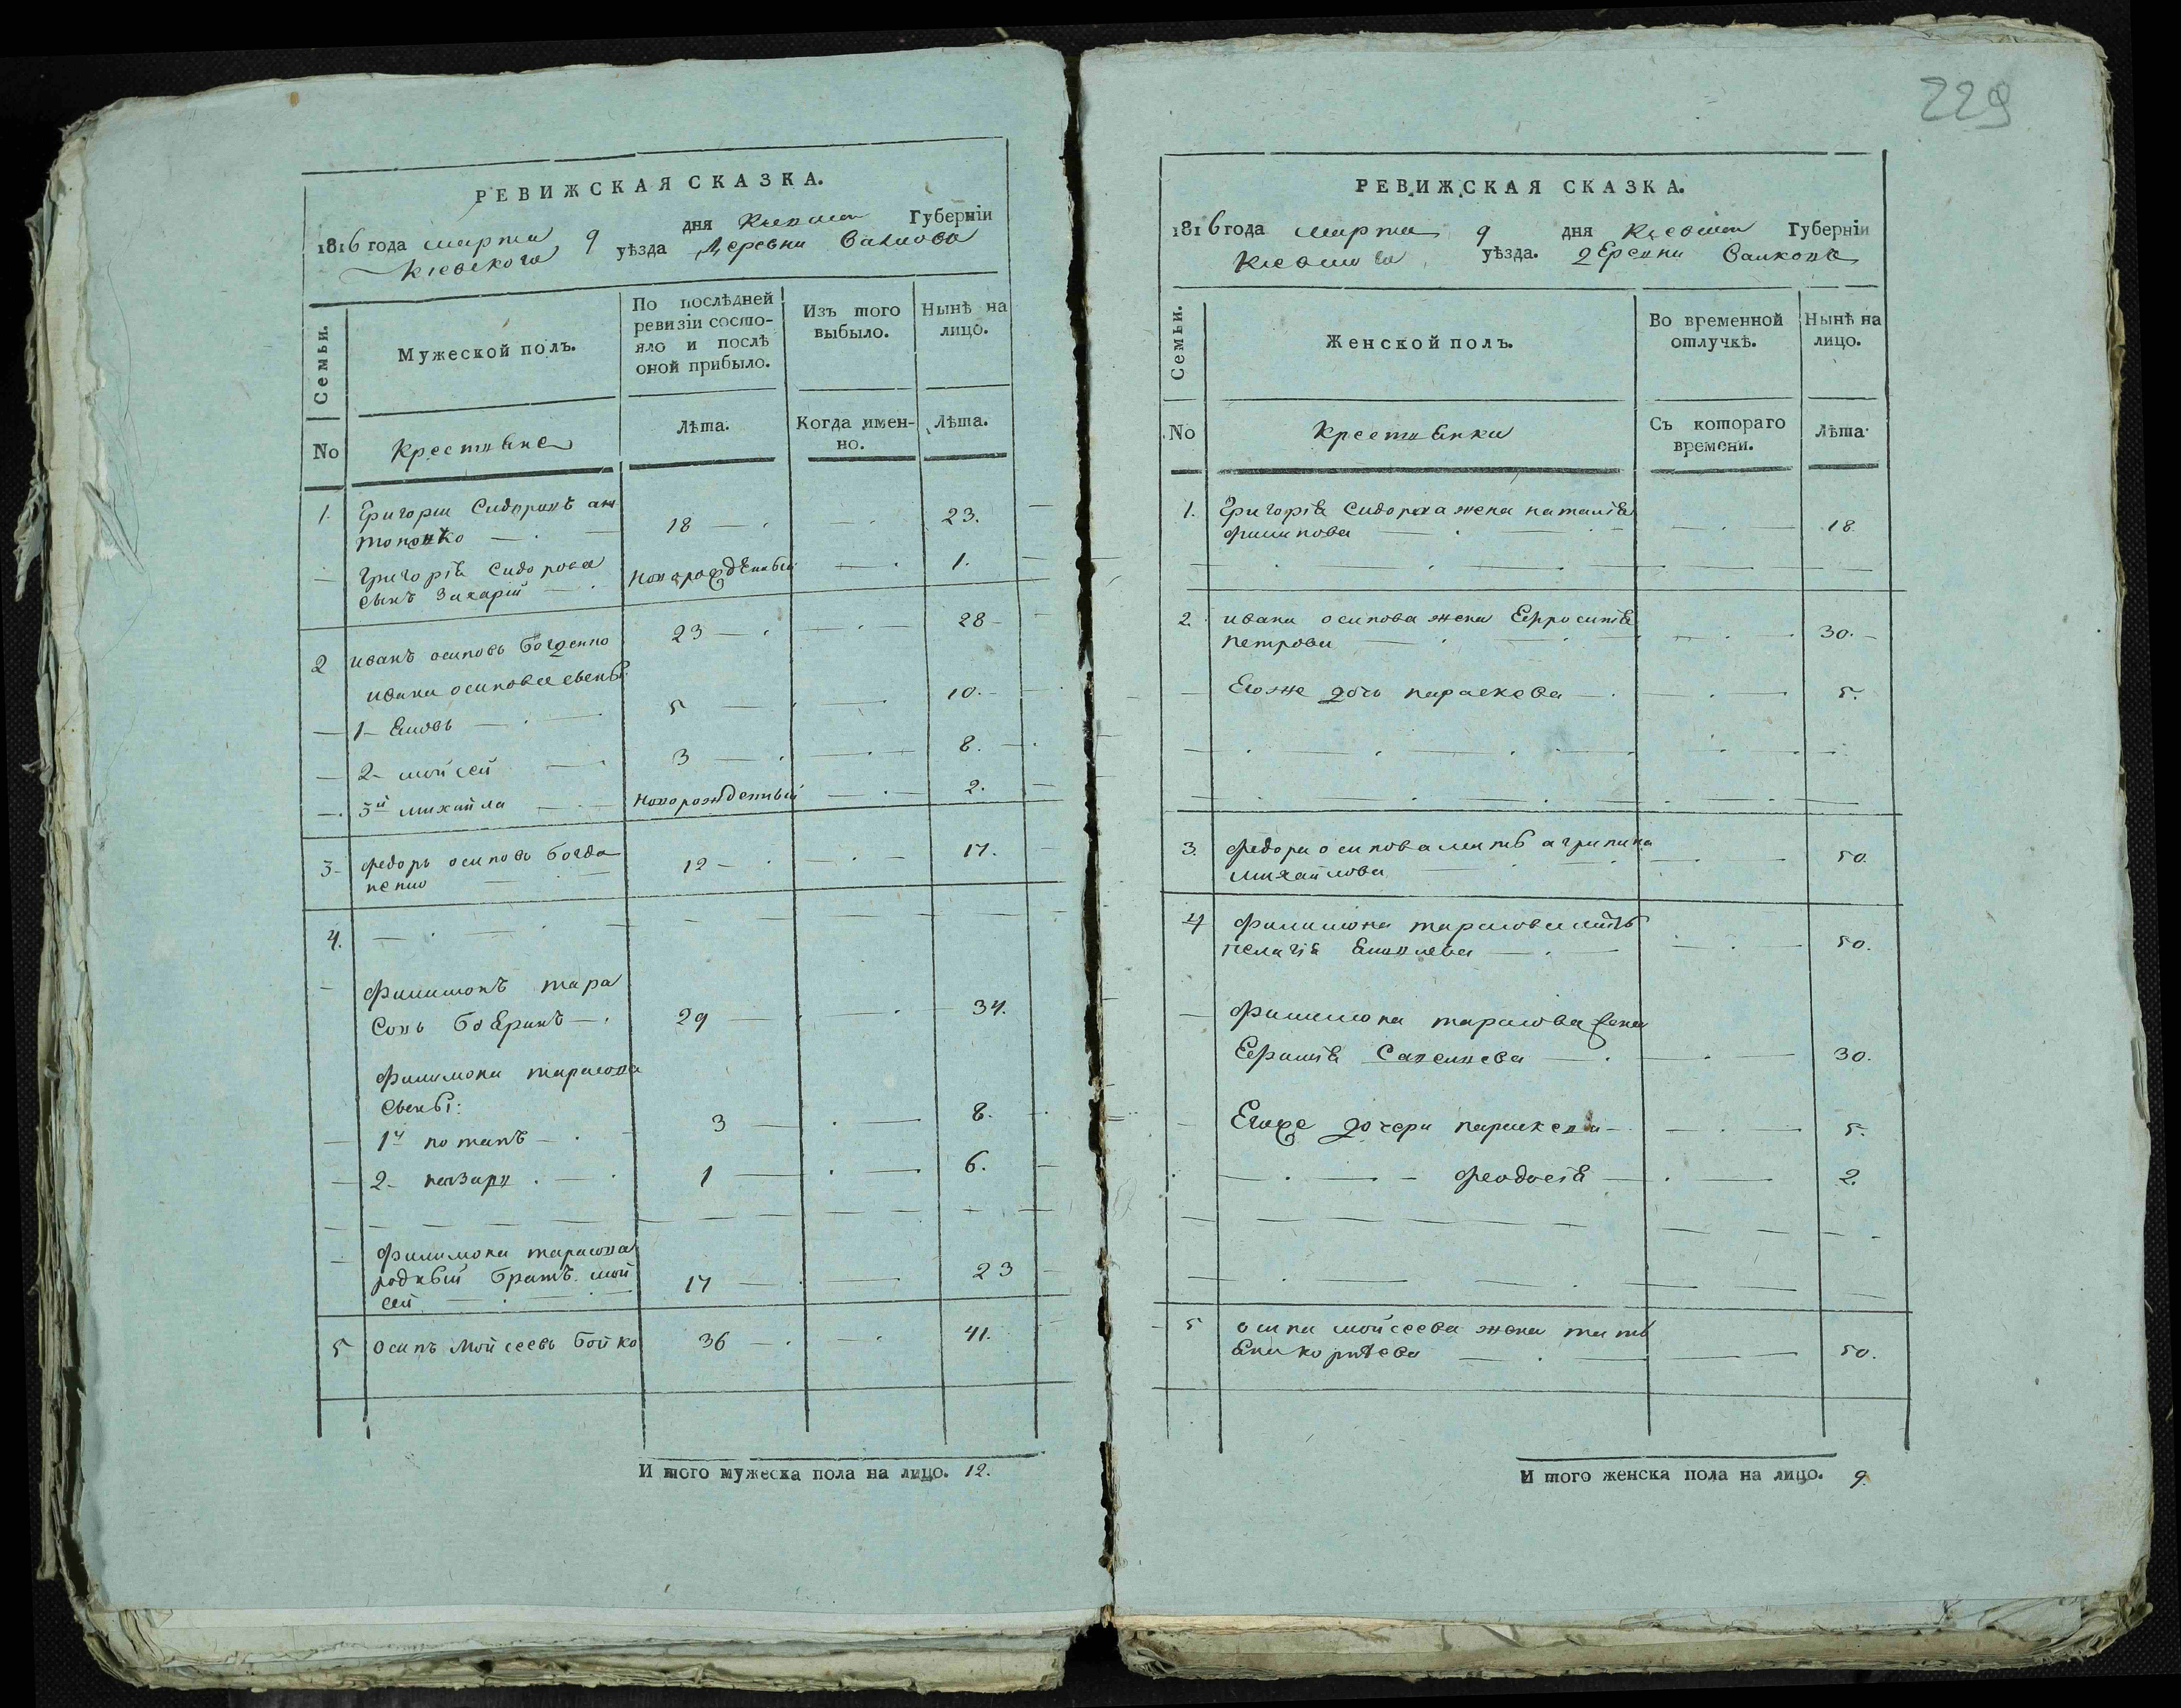 229
РЕВИЖСКАЯ СКАЗКА.
1816 года марта 9 дня Киевской Губерніи
Кіевского уѣзда Деревни
Семьи.
Мужеской полъ.
По послѣдней ревизіи состо-
яло и послѣ
оной прибыло.
Изъ того
выбыло.
Нынѣ на
лицо.
No
Крестьяне
Лѣта.
Когда имен-
но.
Лѣта.
1. Григорий Сидоровъ ан
тоненко 18 23.
Григорія Сидорова
сынъ Захарій Новорожденный 1.
2 иванъ осиповъ богденко 23 28
ивана осипова сыны
1 Яковъ 5 10.
2 мойсей 3 8.
3й михайла Новорожденный 2.
3 федоръ осиповъ богда
ненко 12 17.
4.
Филимонъ тара
совъ бояринъ 29 34.
Филимона тарасова
сыны:
1й потапъ 3 8.
2 назаръ 1 6.
Филимона тарасова
родный братъ мой
сей 17 23
5 осипъ Мойсеевъ бойко 36 41.
И того мужеска пола на лицо. 12.
РЕВИЖСКАЯ СКАЗКА.
1816 года марта 9 дня Кіевской Губерніи
уѣзда. деревни
Семьи.
Женской полъ.
Во временной
отлучкѣ.
Нынѣ на
лицо.
No
Крестьянки
Съ котораго
времени.
Лѣта
1. Григорія Сидорова жена наталія
филипова 18.
2 ивана осипова жена Ефросинія
петрова 30.
Егоже дочь параскева 5.
3. Федора осипова мать агрипина
михайлова 50.
4 Филимона тарасова мать
пелагія Яковлева 50.
Филимона тарасова жена
30.
Егоже дочери параскева 5.
феодосія 2.
5 осипа мойсеева жена татья
50.
И того женска пола на лицо. 9.